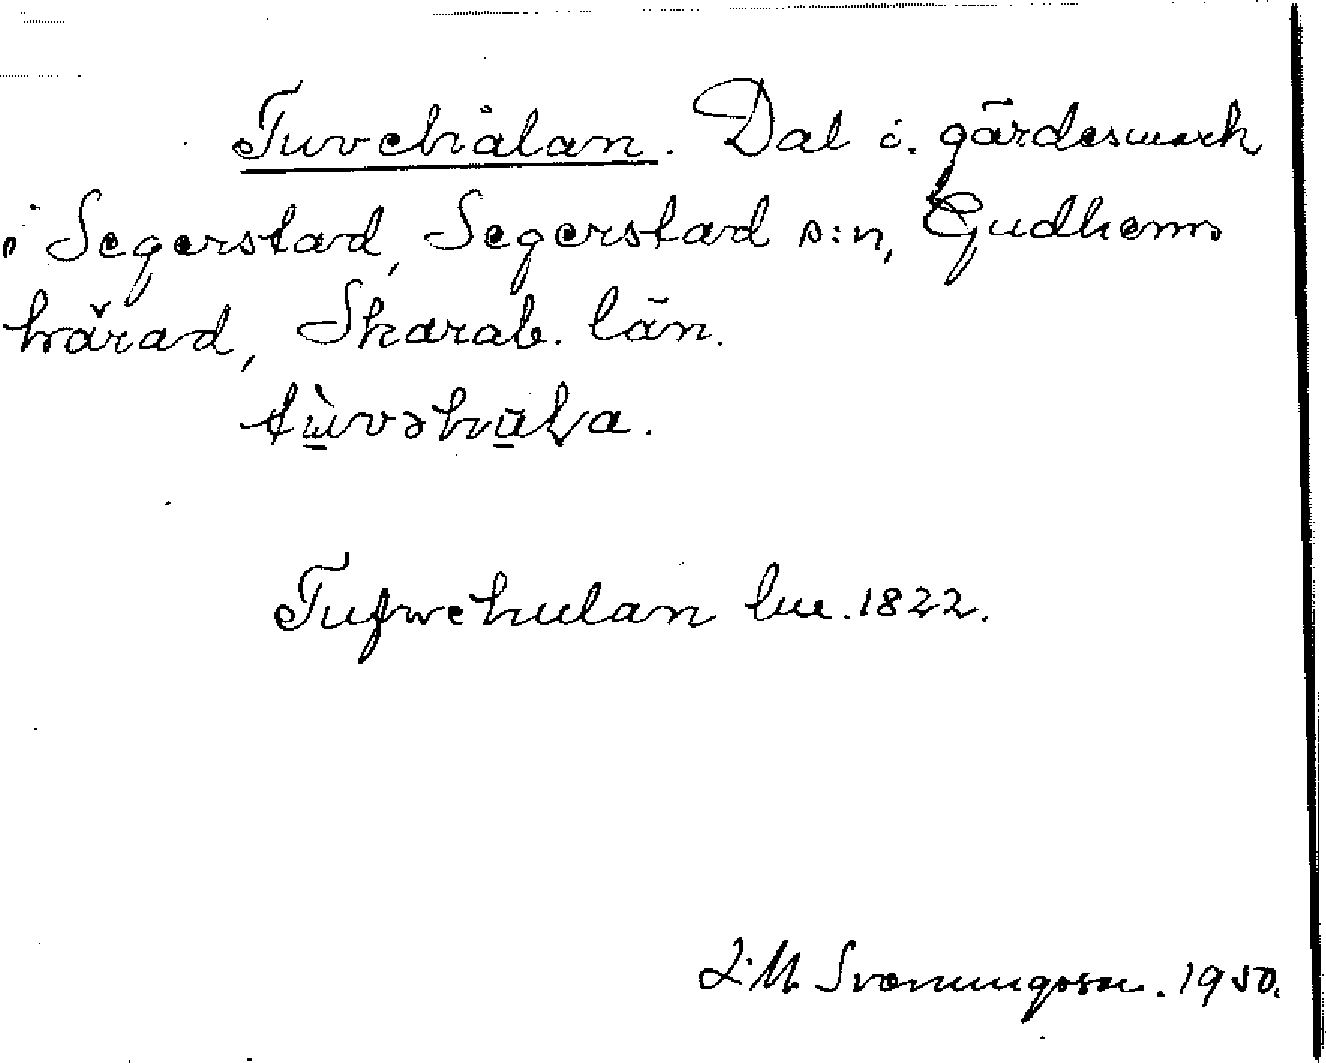 Tuvehålan. Dal i. gärdesmark
i Segerstad, Segerstad s:n, Gudhems
härad, Skarab. län.
tùvəhåla.
Tufwehulan lm. 1822.
Svenungsson. 1950.